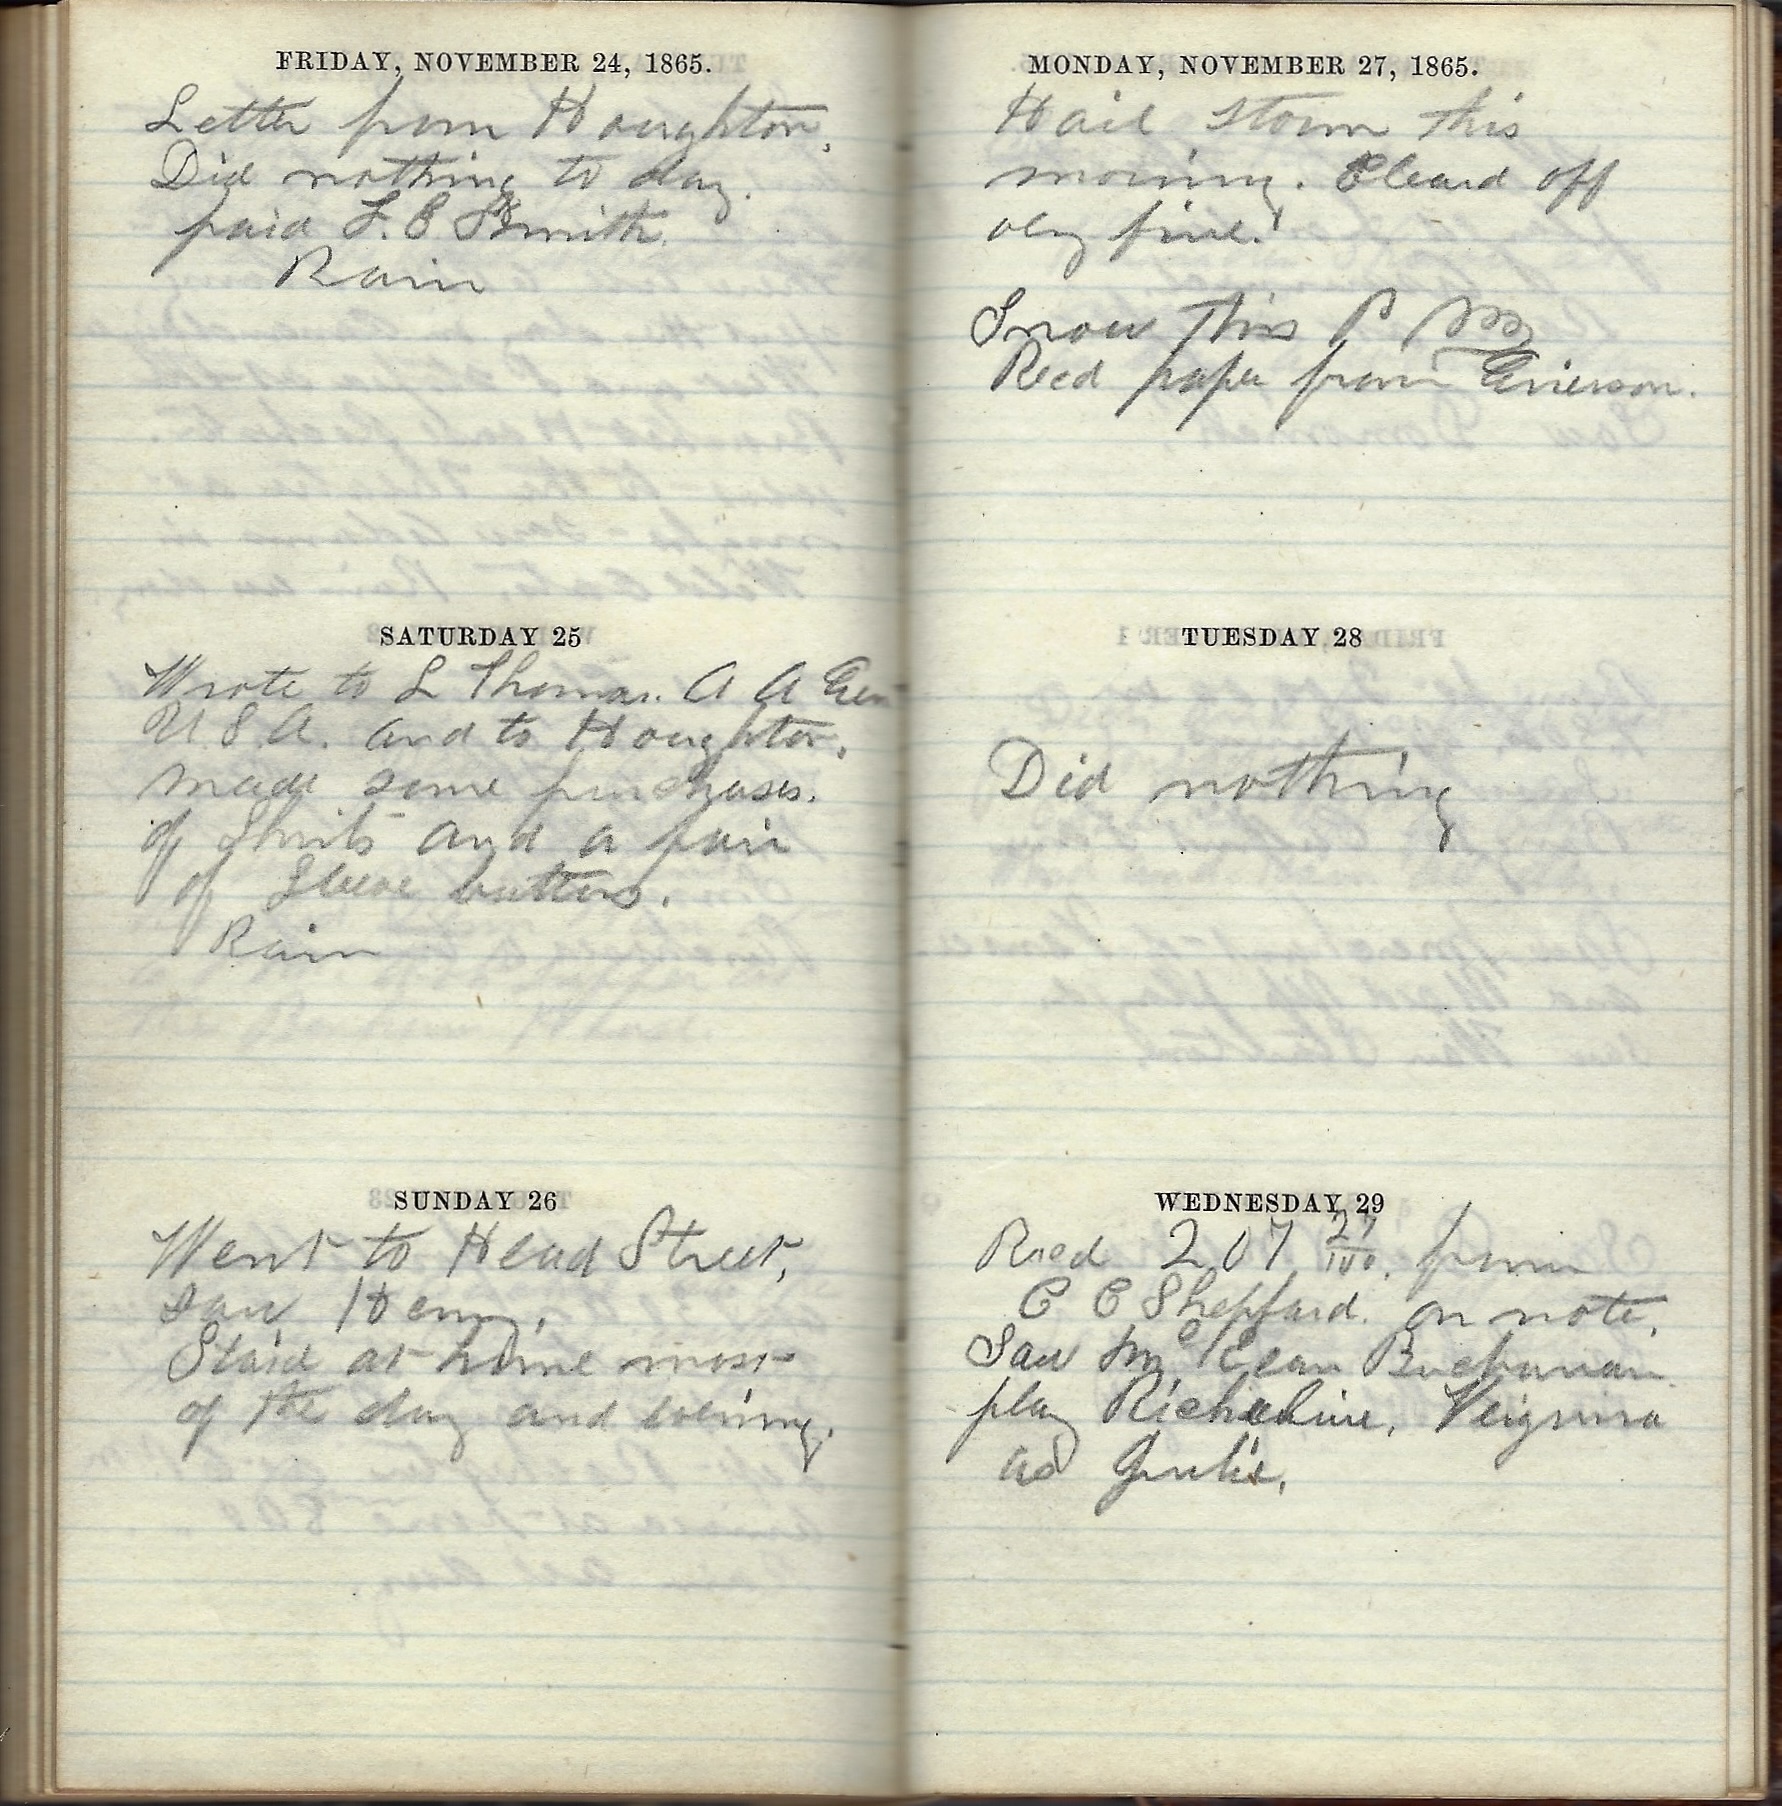 FRIDAY, NOVEMBER 24, 1865.
Letter from Houghton,
Did nothing to day.
paid L. B Smith.
Rain
SATURDAY 25
Wrote to L Thomas. A A Gen
U S A. and to Houghton.
made some purchases.
of Shirts and a pair
of Sleeve buttons.
Rain
SUNDAY 26
Went to Head Street,
saw Henry.
Staid at home most
of the day and evening.
MONDAY, NOVEMBER 27, 1865.
Hail storm this
morning. Cleard off
very fine.
Snow this P M
Recd paper from Grierson.
TUESDAY 28
Did nothing
WEDNESDAY 29
Recd 207 27/100. from
C C Sheppard. on note.
Saw McKean Buchanan
play Richeliue. Veignira
as Julie.